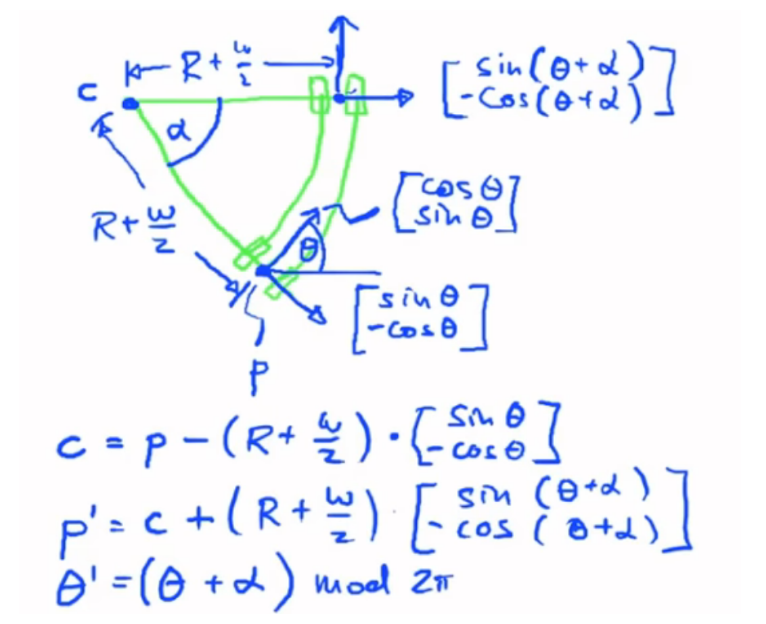 R + w/2
[sin(θ+α)
-cos(θ+α)]
c
α
[cos θ
sin θ]
R + w/2
θ
[sin θ
-cos θ]
p
c = p - (R + w/2) · [sin θ
-cos θ]
p' = c + (R + w/2) · [sin (θ+α)
-cos (θ+α)]
θ' = (θ + α) mod 2π